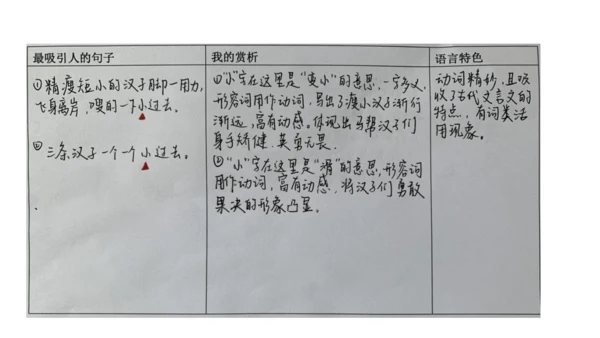 最吸引人的句子
①精瘦短小的汉子脚一用力,
飞身离岸,嗖的一下小过去。
②三条汉子一个一个小过去。
我的赏析
①"小"字在这里是"变小"的意思,一字多义,
形容词用作动词,写出了瘦小汉子渐行
渐远,富有动感。体现出马帮汉子们
身手矫健、英勇无畏。
②"小"字在这里是"滑"的意思,形容词
用作动词,富有动感,将汉子们勇敢
果决的形象凸显。
语言特色
动词精妙,且吸
收了古代文言文的
特点,有词类活
用现象。